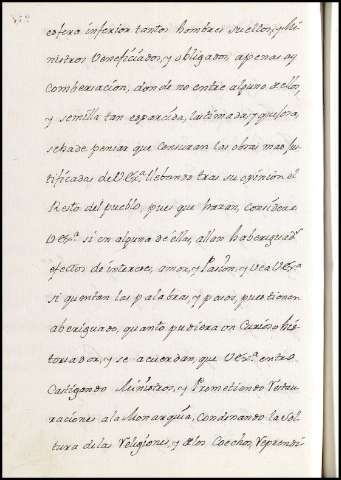 esfera inferior tantos hombres sueltos, y Mi-
nistros Veneficiados, y obligados, apenas ay
Combersacion, donde no entre alguno dellos,
y semilla tan esparcida, lastimada, y quejosa,
sehade pensar que Censuran las obras mas Jus-
tificadas de VEx.ª llebando tras su opinion el
Resto del pueblo, pues que haran, Considere
VEx.ª si en alguna de ellas, allan haberiguad.os
efectos de interes, amor, y Pasion, y Vea VEx.ª
si quentan las palabras, y pasos, pues tienen
aberiguado, quanto pudiera un Curioso his-
toriador, y se acuerdan, que VEx.ª entró
Castigando Ministros, y Prometiendo Restau-
raciones a la Monarquia, Condenando la Sol-
tura de las Religiones, y de los Coechos, Reprendi-